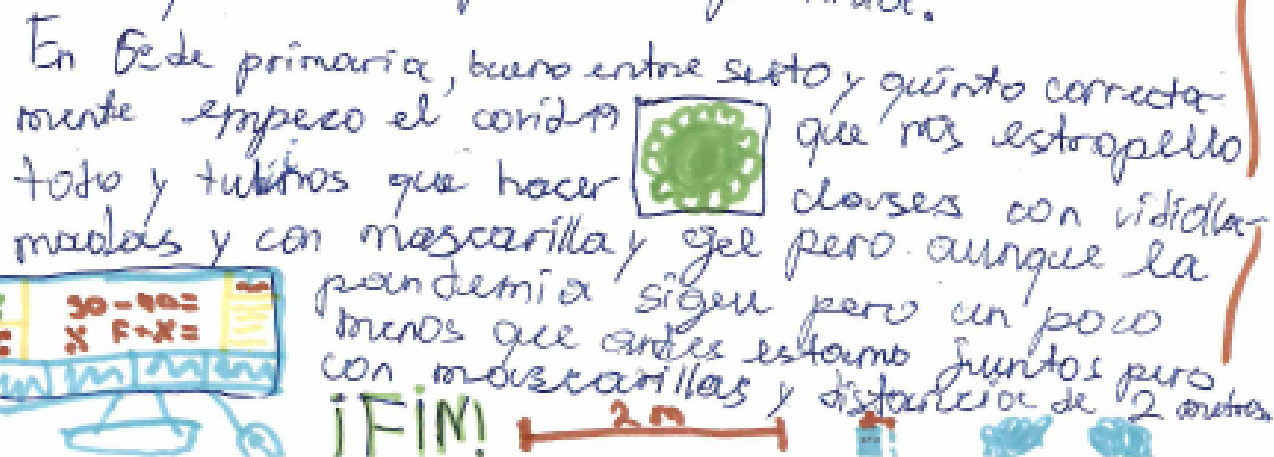 En 6º de primaria, bueno entre sexto y quinto correcta-
mente empeco el covid-19 que nos estropello
todo y tubimos que hacer clases con vidiolla-
madas y con mascarilla y gel pero aunque la
pandemia sigeu pero un poco
menos que antes estamo juntos pero
con mascarillas y distancia de 2 metros
30-40=
X F+X=
¡FIN!
2 m